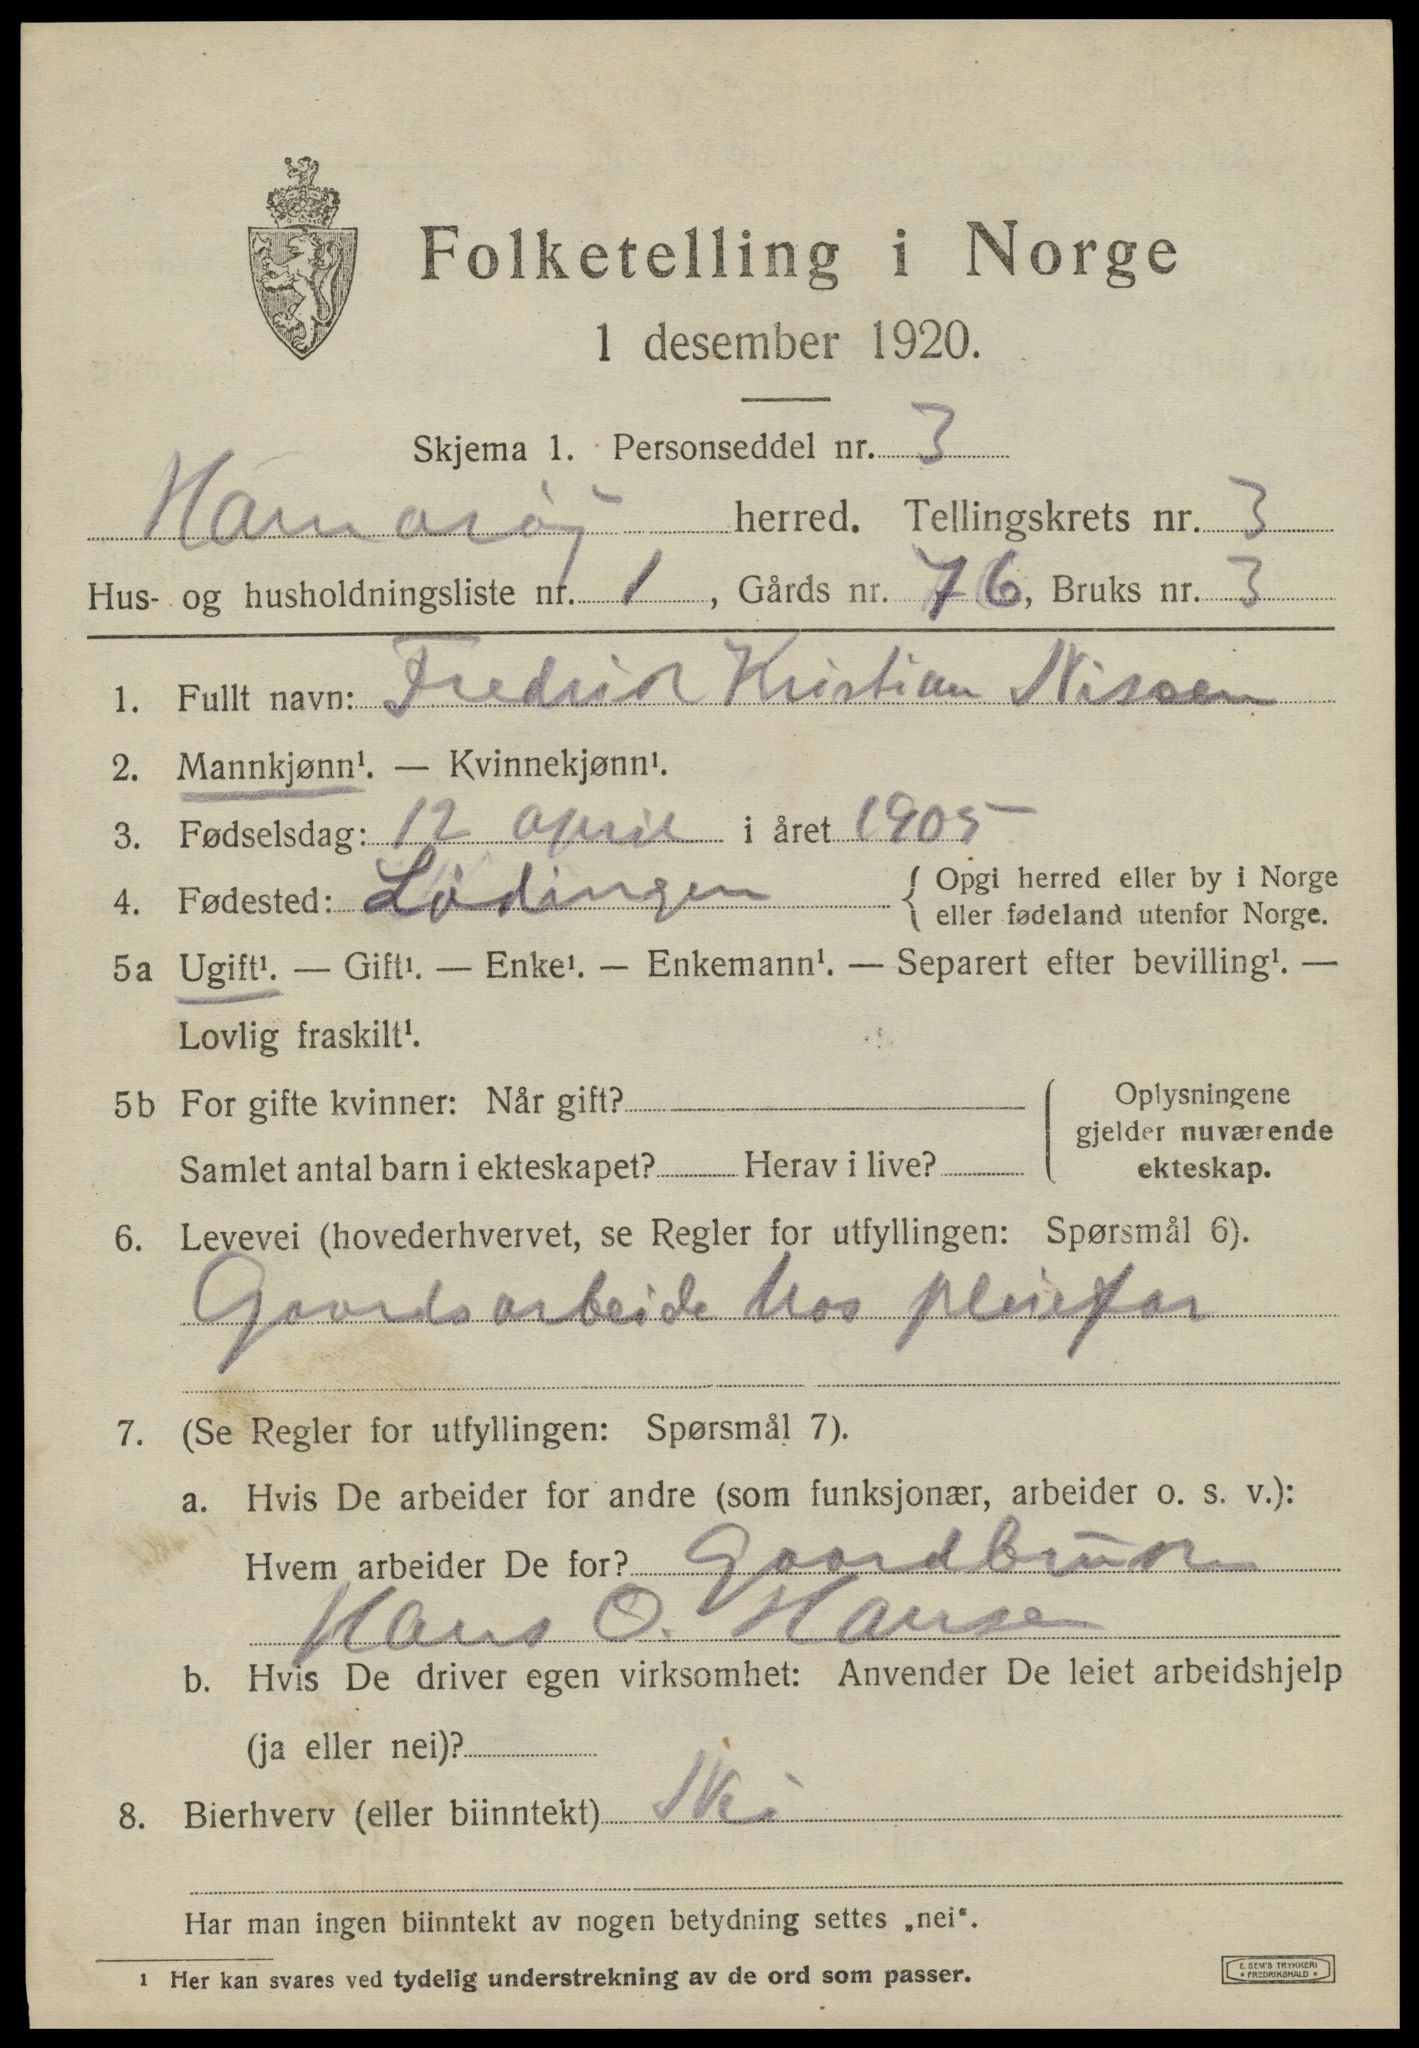 Folketelling i Norge
1 desember 1920.
Skjema 1. Personseddel nr. 3
Hamarøy herred. Tellingskrets nr. 3
Hus- og husholdningsliste nr. 1, Gårds nr. 76, Bruks nr. 3
1. Fullt navn: Fredrik Kristian Nissen
2. Mannkjønn¹. — Kvinnekjønn¹.
3. Fødselsdag: 12 april i året 1905
4. Fødested: Lødingen { Opgi herred eller by i Norge
eller fødeland utenfor Norge.
5a Ugift¹. — Gift¹. — Enke¹. — Enkemann¹. — Separert efter bevilling¹. —
Lovlig fraskilt¹.
5b For gifte kvinner: Når gift?
Samlet antal barn i ekteskapet? Herav i live?
Oplysningene
gjelder nuværende
ekteskap.
6. Levevei (hovederhvervet, se Regler for utfyllingen: Spørsmål 6).
Gaardsarbeide hos pleiefar
7. (Se Regler for utfyllingen: Spørsmål 7).
a. Hvis De arbeider for andre (som funksjonær, arbeider o. s. v.):
Hvem arbeider De for? Gaardbruk
Hans O. Hansen
b. Hvis De driver egen virksomhet: Anvender De leiet arbeidshjelp
(ja eller nei)?
8. Bierhverv (eller biinntekt) Nei
Har man ingen biinntekt av nogen betydning settes „nei“.
1 Her kan svares ved tydelig understrekning av de ord som passer.
E. SEM'S TRYKKERI
* FREDRIKSHALD *